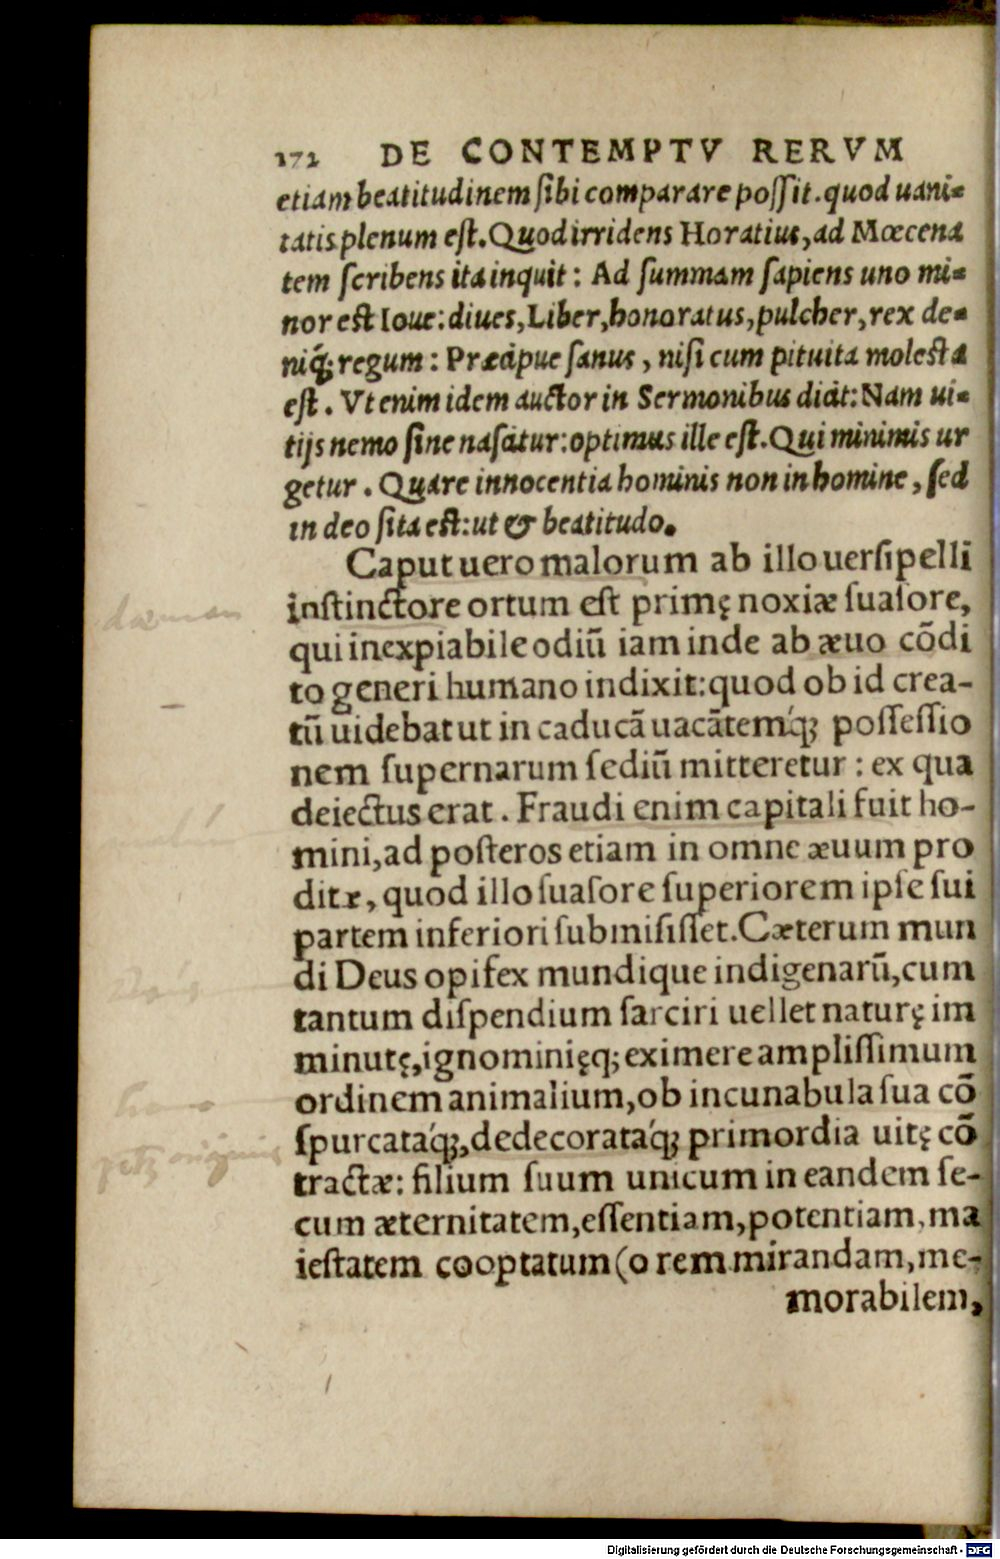 172 DE CONTEMPTV RERVM
etiam beatitudinem sibi comparare possit. quod uani-
tatis plenum est. Quod irridens Horatius, ad Mœcena
tem scribens ita inquit: Ad summam sapiens uno mi-
nor est Ioue: diues, Liber, honoratus, pulcher, rex de-
niq́; regum: Præcipue sanus, nisi cum pituita molesta
est. Vt enim idem auctor in Sermonibus dicit: Nam ui-
tijs nemo sine nascitur: optimus ille est. Qui minimis ur
getur. Quare innocentia hominis non in homine, sed
in deo sita est: ut & beatitudo.
Caput uero malorum ab illo uersipelli
instinctore ortum est primę noxiæ suasore,
qui inexpiabile odiũ iam inde ab æuo cõdi
to generi humano indixit: quod ob id crea-
tũ uidebat ut in caducã uacãtemq́; possessio
nem supernarum sediũ mitteretur: ex qua
deiectus erat. Fraudi enim capitali fuit ho-
mini, ad posteros etiam in omne æuum pro
ditæ, quod illo suasore superiorem ipse sui
partem inferiori submisisset. Cæterum mun
di Deus opifex mundique indigenarũ, cum
tantum dispendium sarciri uellet naturę im
minutę, ignominięq; eximere amplissimum
ordinem animalium, ob incunabula sua cõ
spurcataq́;, dedecorataq́; primordia uitę cõ
tractæ: filium suum unicum in eandem se-
cum æternitatem, essentiam, potentiam, ma
iestatem cooptatum (o rem mirandam, me-
morabilem,
dæmon
homo
origin
Digitalisierung gefördert durch die Deutsche Forschungsgemeinschaft - DFG